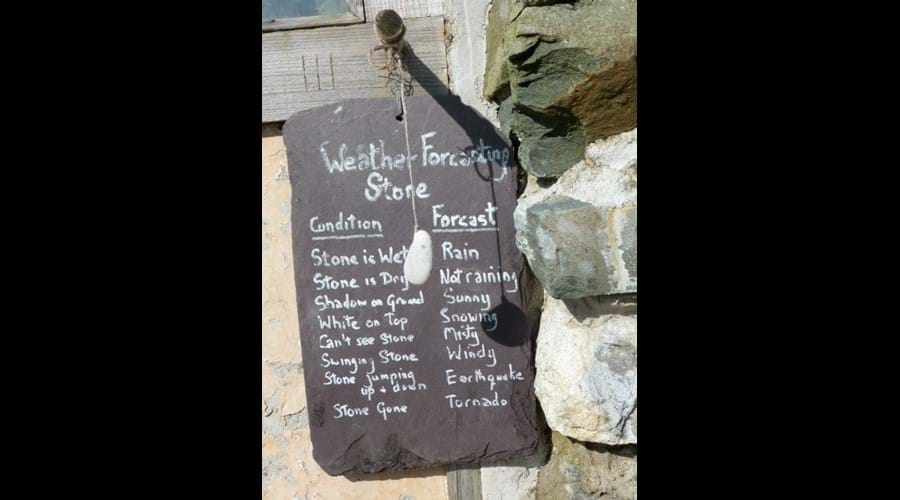 Weather Forcasting
Stone
Condition Forcast
Stone is Wet Rain
Stone is Dry Not raining
Shadow on Ground Sunny
White on Top Snowing
Can't see Stone Misty
Swinging Stone Windy
Stone jumping
up + down Earthquake
Stone Gone Tornado